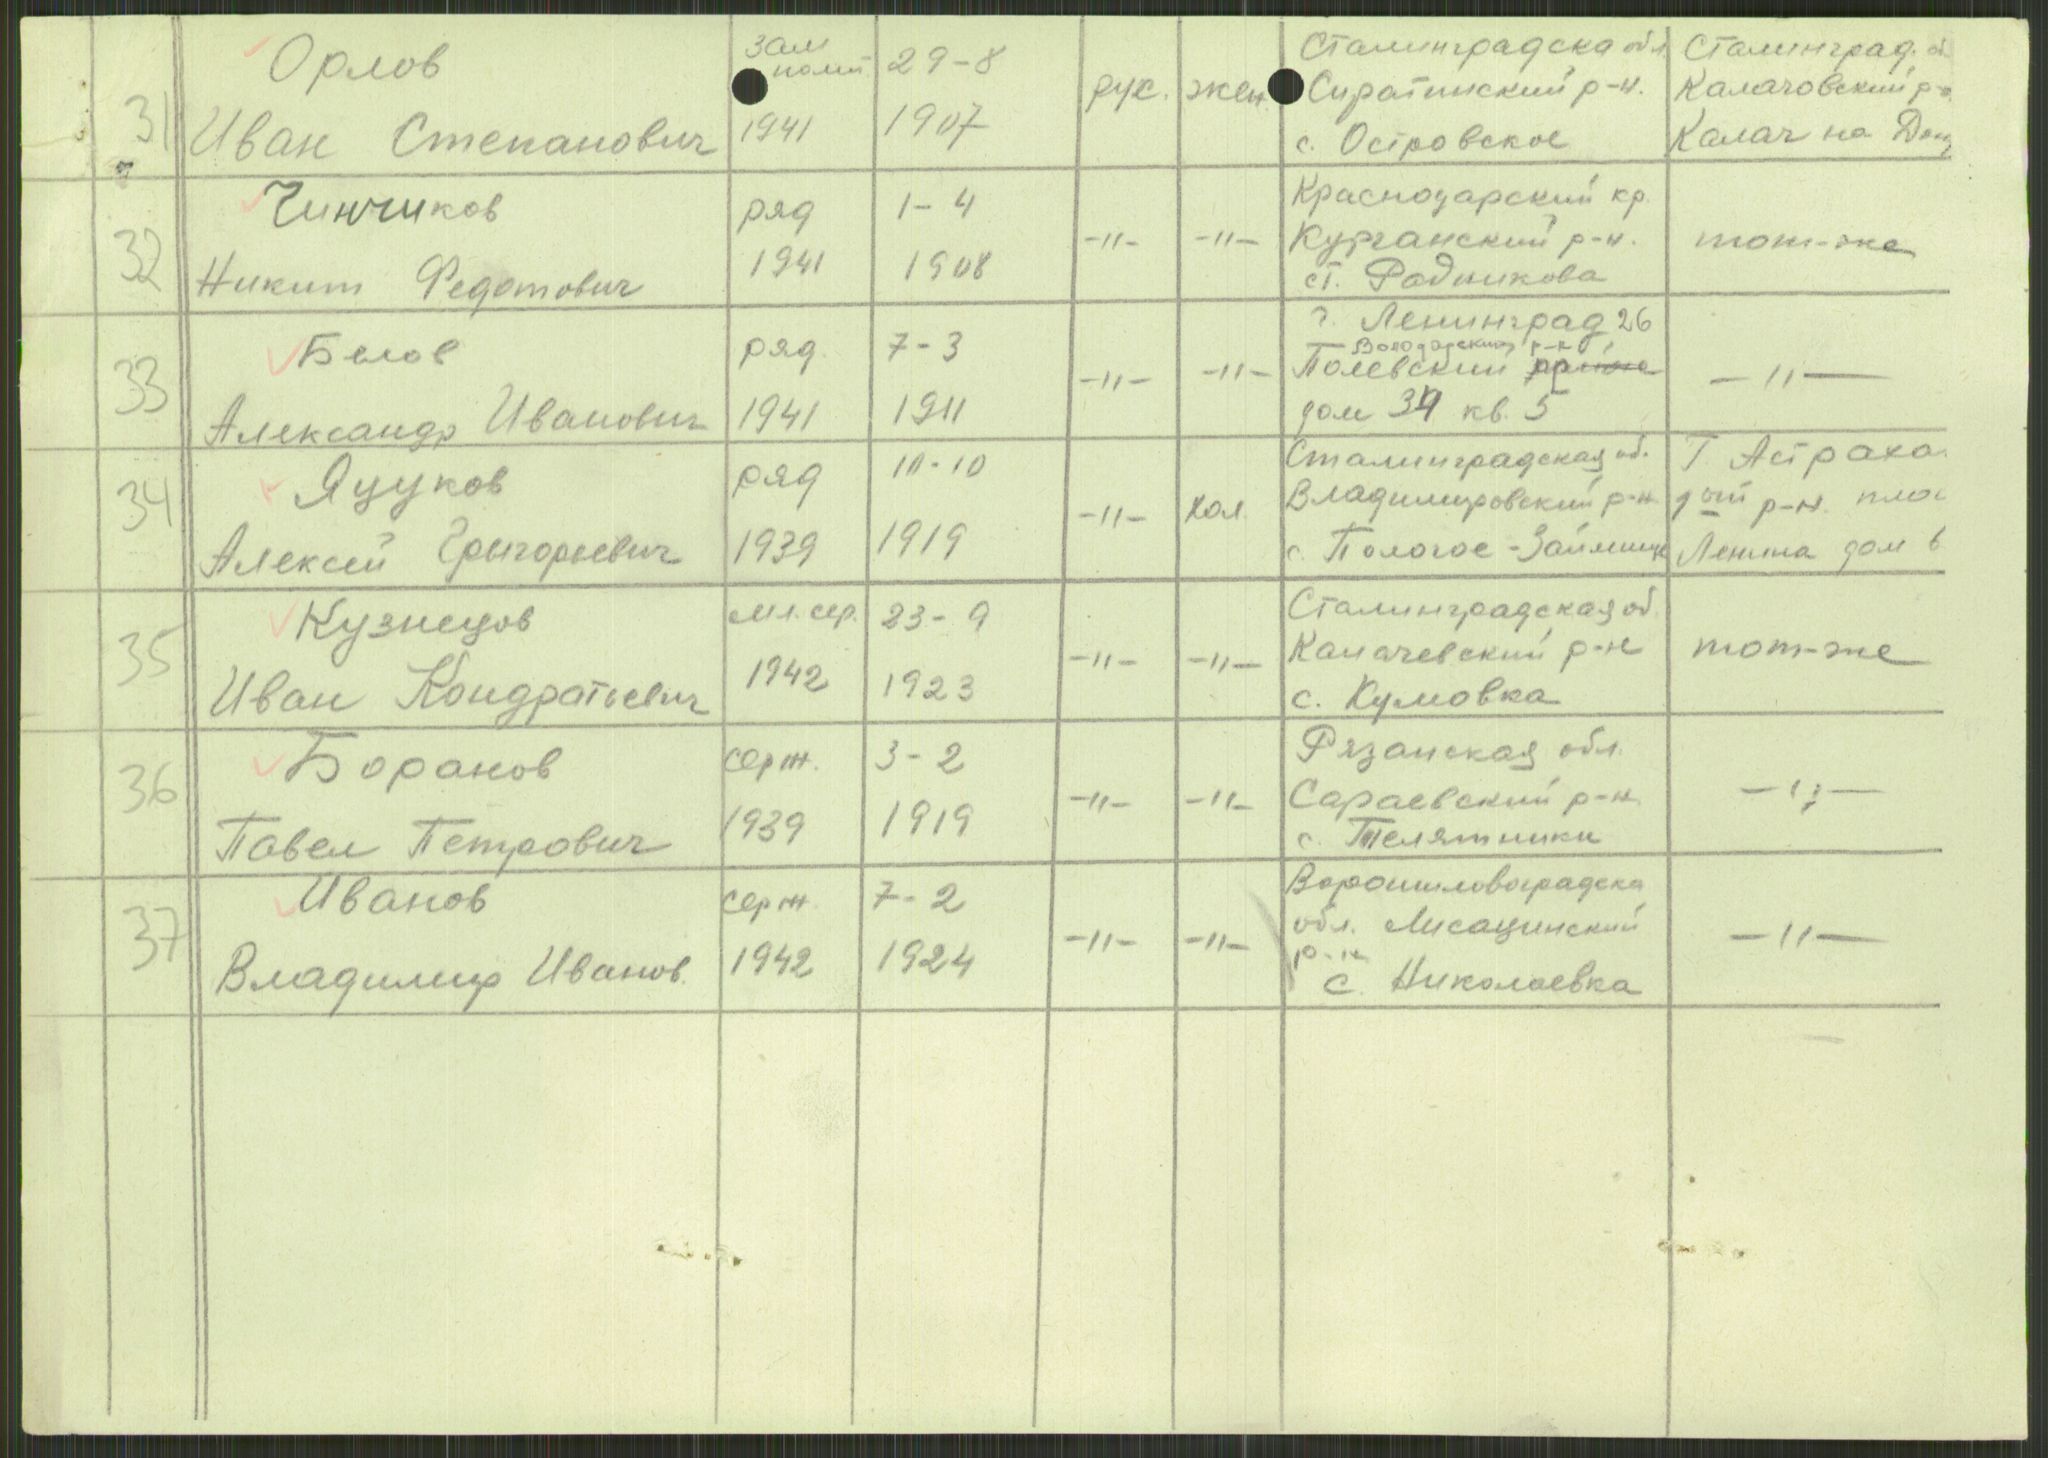 31 Орлов
Иван Степанович
зам
полит.
1941
29-8
1907
рус.
жен.
Сталинградска обл
Сиротинский р-н.
с. Островское
Сталинград. об
Калачовский р-н.
Калач на Дону
32 Чинчиков
Никит Федотович
ряд
1941
1-4
1908
-"-
-"-
Краснодарский кр.
Курганский р-н.
ст. Родникова
тот-же
33 Белов
Александр Иванович
ряд.
1941
7-3
1911
-"-
-"-
г. Ленинград 26
Володарский р-н
Полевский
дом 34 кв. 5
-"-
34 Яцуков
Алексей Григорьевич
ряд
1939
10-10
1919
-"-
хол.
Сталинградская об.
Владимировский р-н
с. Пологое-Займище
Г. Астраха
р-н. пло
Ленина дом 6
35 Кузнецов
Иван Кондратьевич
мл. сер.
1942
23-9
1923
-"-
-"-
Сталинградская об.
Калачевский р-н
с. Кумовка
тот-же
36 Боранов
Павел Петрович
серж.
1939
3-2
1919
-"-
-"-
Рязанская обл.
Сараевский р-н
с. Телятники
-"-
37 Иванов
Владимир Иванов.
серж.
1942
7-2
1924
-"-
-"-
Ворошиловоградска
обл. Лисацинский
р-н
с. Николаевка
-"-